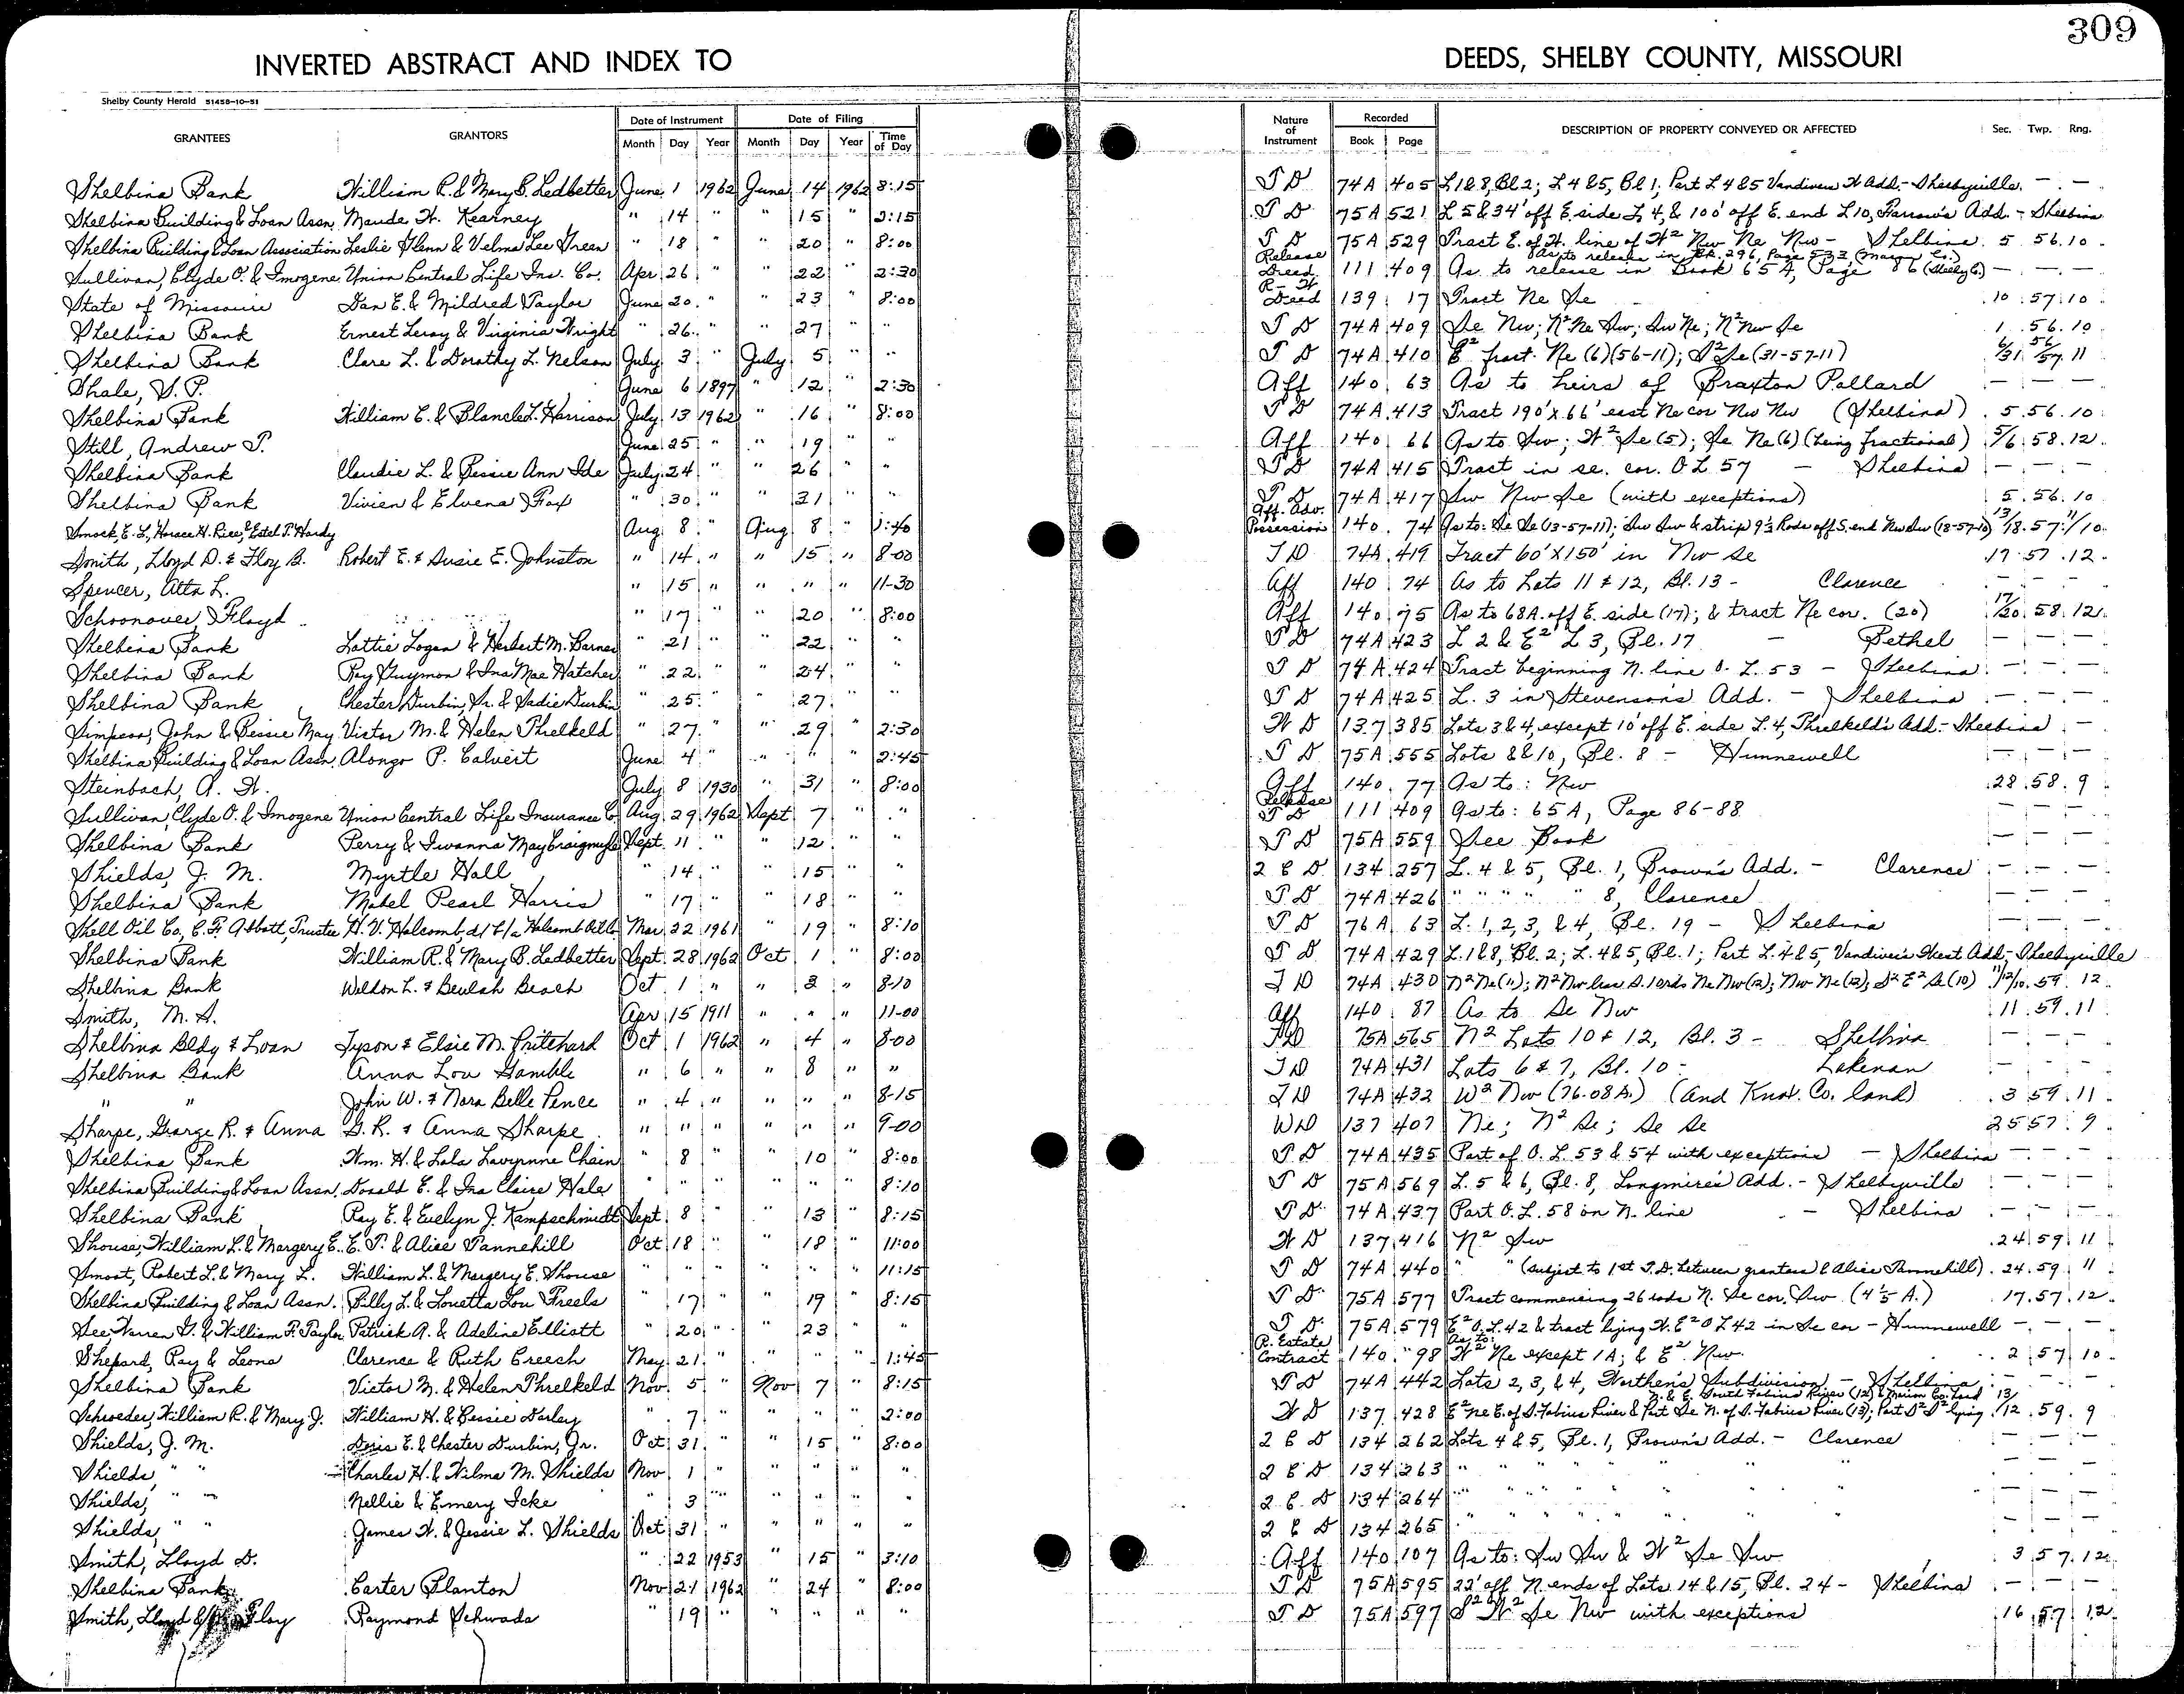 309
INVERTED ABSTRACT AND INDEX TO DEEDS, SHELBY COUNTY, MISSOURI
Shelby County Herald 51458-10-51
GRANTEES GRANTORS Date of Instrument Month Day Year Date of Filing Month Day Year Time of Day Nature of Instrument Recorded Book Page DESCRIPTION OF PROPERTY CONVEYED OR AFFECTED Sec. Twp. Rng.
Shelbina Bank William R. & Mary B. Ledbetter June 1 1962 June 14 1962 8:15 T D 74A 405 L 1 & 8, Bl 2; L 4 & 5, Bl 1; Part L 4 & 5 Vandivers W Add. - Shelbyville. — . —
Shelbina Building & Loan Assn. Maude W. Kearney " 14 " " 15 " 3:15 T D 75A 521 L 5 & 34' off E side L 4, & 100' off E. end L 10, Farrow's Add. - Shelbina
Shelbina Building & Loan Association Leslie Glenn & Velma Lee Green " 18 " " 20 " 8:00 T D 75A 529 Tract E. of W. line of W² Nw Ne Nw - Shelbina. 5 56. 10
Sullivan, Clyde O. & Imogene Union Central Life Ins. Co. Apr 26 " " 22 " 2:30 Release Deed 111 409 As to release in Bk. 296, Page 533, (Macon Co.) As to release in Book 65A, Page 86 (Shelby Co.) — . — . —
State of Missouri Dan E. & Mildred Taylor June 20 " " 23 " 8:00 R-W Deed 139 17 Tract Ne Se 10 57 10
Shelbina Bank Ernest Leroy & Virginia Wright " 26 " " 27 " " T D 74A 409 Se Nw; N² Ne Sw; Sw Ne; N² Nw Se 1 56. 10
Shelbina Bank Clare L. & Dorothy L. Nelson July 3 " July 5 " " T D 74A 410 E² fract. Ne (6)(56-11); S² Se (31-57-11) 6/31 56/57 11
Shale, S. P. June 6 1897 " 12 " 2:30 Aff 140 63 As to heirs of Braxton Pollard — — —
Shelbina Bank William E. & Blanche L. Harrison July 13 1962 " 16 " 8:00 T D 74A 413 Tract 190' x 66' east Ne cor Nw Nw (Shelbina) 5 56. 10
Still, Andrew T. June 25 " " 19 " " Aff 140 66 As to Sw; W² Se (5); Se Ne (6) (being fractional) 5/6 58. 12
Shelbina Bank Claudie L. & Bessie Ann Ide July 24 " " 26 " " T D 74A 415 Tract in se. cor. O L 57 - Shelbina — — —
Shelbina Bank Vivien & Elvena Fox " 30 " " 31 " " T D 74A 417 Sw Nw Se (with exceptions) 5. 56. 10
Smock, E. L., Horace H. Rice, & Estel T. Hardy Aug 8 " Aug 8 " 1:40 Aff. Adv. Possession 140 74 As to: Se Se (13-57-11); Sw Sw & strip 9⅓ Rods off S. end Nw Sw (18-57-10) 13/18 57 11/10
Smith, Lloyd D. & Floy B. Robert E. & Susie E. Johnston " 14 " " 15 " 8-00 T D 74A 419 Tract 60' X 150' in Nw Se 17 57 12
Spencer, Atta L. " 15 " " " " 11-30 Aff 140 74 As to Lots 11 & 12, Bl. 13 - Clarence — — —
Schoonover, Floyd " 17 " " 20 " 8:00 Aff 140 75 As to 68A. off E. side (17); & tract Ne cor. (20) 17/20 58. 12
Shelbina Bank Lottie Logan & Herbert M. Barnes " 21 " " 22 " " T D 74A 423 L 2 & E² L 3, Bl. 17 - Bethel — — —
Shelbina Bank Roy Guymon & Ina Mae Hatcher " 22 " " 24 " " T D 74A 424 Tract beginning N. line O. L. 53 - Shelbina — — —
Shelbina Bank Chester Durbin, Sr. & Sadie Durbin " 25 " " 27 " " T D 74A 425 L. 3 in Stevenson's Add. - Shelbina — — —
Simpson, John & Bessie May Victor M. & Helen Threlkeld " 27 " " 29 " 2:30 W D 137 385 Lots 3 & 4, except 10' off E. side L. 4, Threlkeld's Add. - Shelbina —
Shelbina Building & Loan Assn. Alonzo P. Calvert June 4 " " " " 2:45 T D 75A 555 Lots 8 & 10, Bl. 8 - Hunnewell — — —
Steinbach, A. W. July 8 1930 " 31 " 8:00 Aff 140 77 As to: Nw 28 58. 9
Sullivan, Clyde O. & Imogene Union Central Life Insurance Co. Aug. 29 1962 Sept 7 " " Release T D 111 409 As to: 65A, Page 86-88 — — —
Shelbina Bank Perry & Iwanna May Craigmyle Sept. 11 " " 12 " " T D 75A 559 See Book — — —
Shields, J. M. Myrtle Hall " 14 " " 15 " " 2 C D 134 257 L. 4 & 5, Bl. 1, Brown's Add. - Clarence — — —
Shelbina Bank Mabel Pearl Harris " 17 " " 18 " " T D 74A 426 " " " " " 8, Clarence — — —
Shell Oil Co, C. F. Abbott, Trustee H. V. Holcomb, d/b/a Holcomb Mar 22 1961 " 19 " 8:10 T D 76A 63 L. 1, 2, 3, & 4, Bl. 19 - Shelbina — — —
Shelbina Bank William R. & Mary B. Ledbetter Sept. 28 1962 Oct 1 " 8:00 T D 74A 429 L. 1 & 8, Bl. 2; L. 4 & 5, Bl. 1; Part L. 4 & 5, Vandiver's West Add. - Shelbyville
Shelbina Bank Weldon L. & Beulah Beach Oct 1 " " 3 " 8-10 T D 74A 430 N² Ne (11); N² Nw less S. 10 rds Ne Nw (12); Nw Ne (12); S² E² Se (10) 11/12/10. 59 12
Smith, M. S. Apr 15 1911 " " " 11-00 Aff 140 87 As to Se Nw 11. 59. 11
Shelbina Bldg & Loan Tyson & Elsie M. Pritchard Oct 1 1962 " 4 " 8-00 T D 75A 565 N² Lots 10 & 12, Bl. 3 - Shelbina — — —
Shelbina Bank Anna Lou Gamble " 6 " " 8 " " T D 74A 431 Lots 6 & 7, Bl. 10 - Lakenan — — —
" " John W. & Nora Belle Pence " 4 " " " " 8-15 T D 74A 432 W² Nw (76.08A.) (and Knox. Co. land) 3 59. 11
Sharpe, George R. & Anna G. R. & Anna Sharpe " " " " " " 9-00 WD 137 407 Ne; N² Se; Se Se 25 57. 9
Shelbina Bank Wm. H. & Lola Lavynne Chain " 8 " " 10 " 8:00 T D 74A 435 Part of O. L. 53 & 54 with exceptions - Shelbina — — —
Shelbina Building & Loan Assn. Donald E. & Ina Claire Hale " " " " " " 8:10 T D 75A 569 L. 5 & 6, Bl. 8, Longmire's Add. - Shelbyville — — —
Shelbina Bank Roy E. & Evelyn J. Kampschmidt Sept. 8 " " 13 " 8:15 T D 74A 437 Part O. L. 58 on N. line - Shelbina — — —
Shouse, William L. & Margery E. E. T. & Alice Tannehill Oct 18 " " 18 " 11:00 W D 137 416 N² Sw 24 59 11
Smoot, Robert L. & Mary L. William L. & Margery E. Shouse " " " " " " 11:15 T D 74A 440 " " (subject to 1st T. D. between grantors & Alice Tannehill). 24. 59 11
Shelbina Building & Loan Assn. Billy L. & Louetta Lou Freels " 17 " " 19 " 8:15 T D 75A 577 Tract commencing 26 rods N. Se cor. Sw (4⅕ A.) 17. 57. 12
See, Warren G. & William F. Taylor Patrick A. & Adeline Elliott " 20 " " 23 " " T D 75A 579 E² O. L. 42 & tract lying W. E² O L 42 in Se cor - Hunnewell — — —
Shepard, Ray & Leona Clarence & Ruth Creech May 21 " " " " 1:45 R. Estate Contract 140 98 As to: W² Ne except 1A; & E² Nw 2 57 10
Shelbina Bank Victor M. & Helen Threlkeld Nov. 5 " Nov 7 " 8:15 T D 74A 442 Lots 2, 3, & 4, Worthen's Subdivision - Shelbina — — —
Schroeder, William R. & Mary J. William H. & Bessie Darley " 7 " " " " 2:00 W D 137 428 E² Ne E. of S. Fabius River & Part Se N. of S. Fabius River (13); Part S² S² lying N. & E. South Fabius River (12) & Marion Co. Land 13/12. 59. 9
Shields, J. M. Doris E. & Chester Durbin, Jr. Oct 31 " " 15 " 8:00 2 C D 134 262 Lots 4 & 5, Bl. 1, Brown's Add. - Clarence — — —
Shields, " " Charles H. & Wilma M. Shields Nov 1 " " " " " 2 C D 134 263 " " " " " " " — — —
Shields, " " Nellie & Emery Icke " 3 " " " " " 2 C D 134 264 " " " " " " " — — —
Shields, " " James W. & Jessie L. Shields Oct 31 " " " " " 2 C D 134 265 " " " " " " " — — —
Smith, Lloyd D. " 22 1953 " 15 " 3:10 Aff 140 107 As to: Sw Sw & W² Se Sw 3 57. 12
Shelbina Bank Carter Blanton Nov 21 1962 " 24 " 8:00 T D 75A 595 22' off N. ends of Lots 14 & 15, Bl. 24 - Shelbina — — —
Smith, Lloyd & Floy Raymond Schwada " 19 " " " " " T D 75A 597 S² W² Se Nw with exceptions 16 57 12